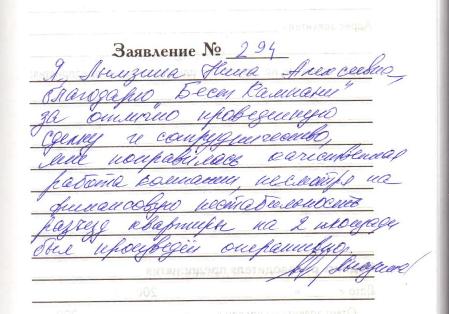 Заявление № 294
Я, Лымзина Нина Алексеевна,
благодарю Бест Кампани"
за отлично проведенную
сделку и сотрудничество,
мне понравилась качественная
работа компании, несмотря на
финансовую нестабильность
разъезд квартиры на 2 площади
был произведён оперативно.